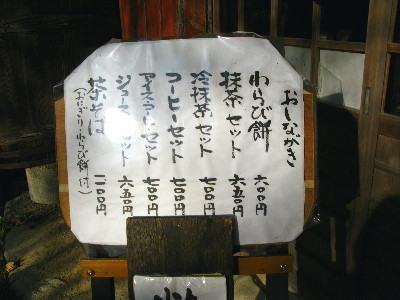 おしながき
わらび餅 六〇〇円
抹茶セット 六五〇円
冷抹茶セット 七〇〇円
コーヒーセット 七〇〇円
アイスコーヒーセット 七〇〇円
ジュースセット 六五〇円
茶そば 一、一〇〇円
(おにぎり・わらび餅付)